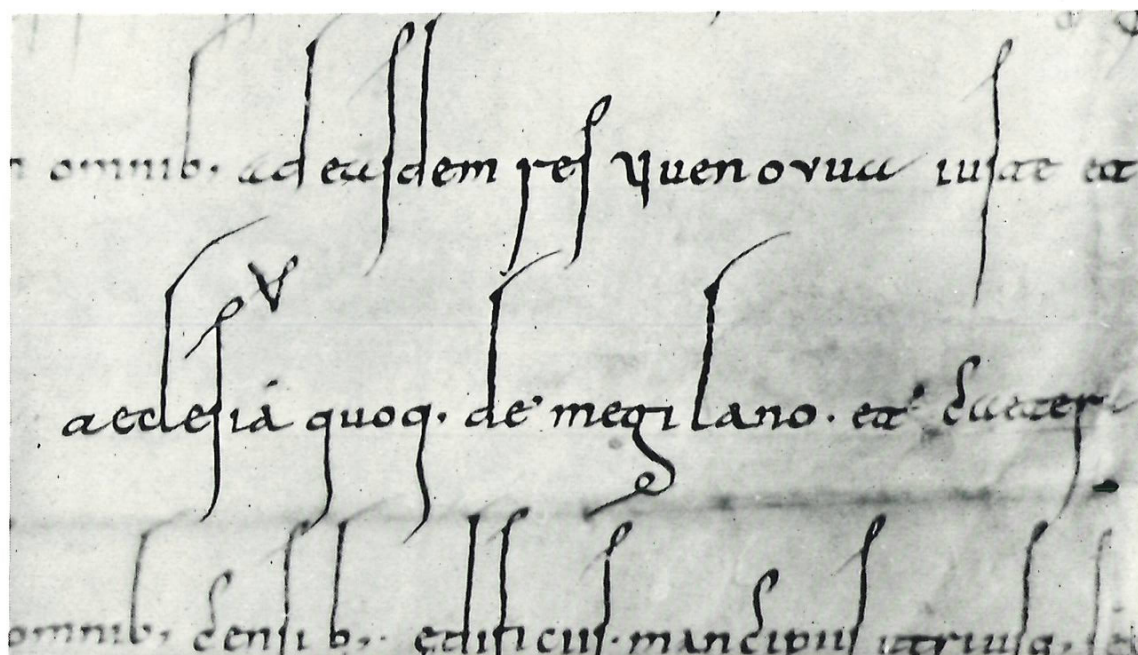 omnib. ad easdem res quenovua iuste et
aeclesiá quoq. de megilano. et
omnib. edificiis. mancipiis utriusq.